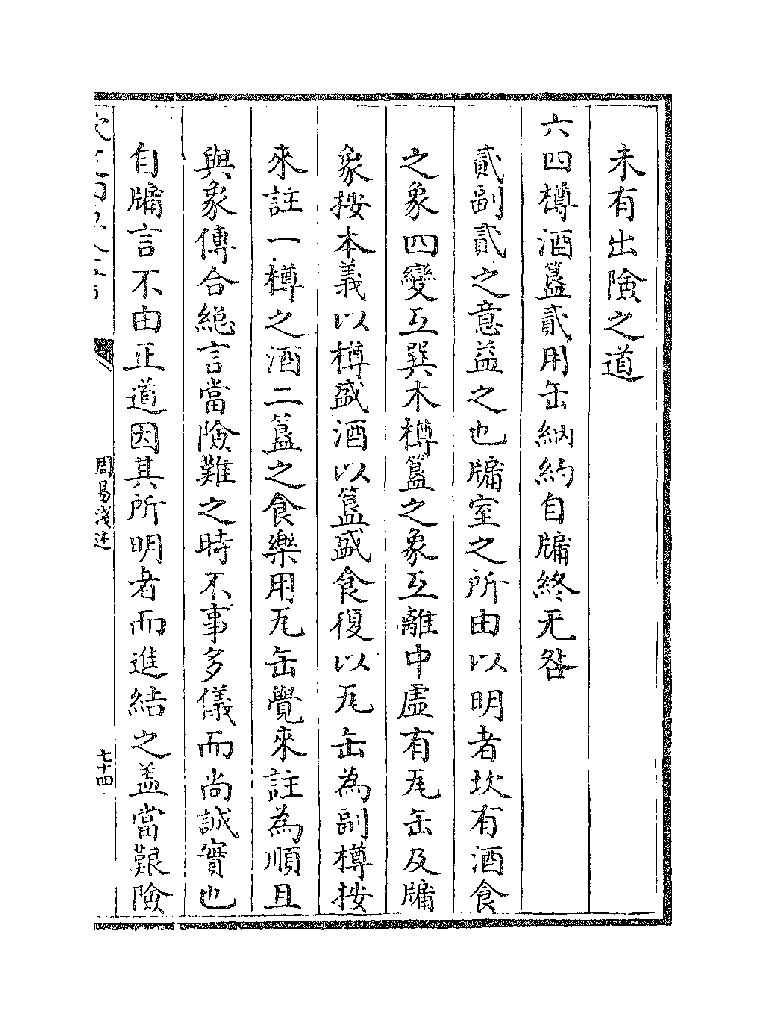 未有出險之道
六四樽酒簋貳用缶納約自牖終无咎
貳副貳之意益之也牖室之所由以明者坎有酒食
之象四變互巽木樽簋之象互離中虛有瓦缶及牖
象按本義以樽盛酒以簋盛食復以瓦缶為副樽按
來註一樽之酒二簋之食樂用瓦缶覺來註為順且
與象傳合緫言當險難之時不事多儀而尚誠實也
自牖言不由正道因其所明者而進結之盖當艱險
周易淺述
七十四